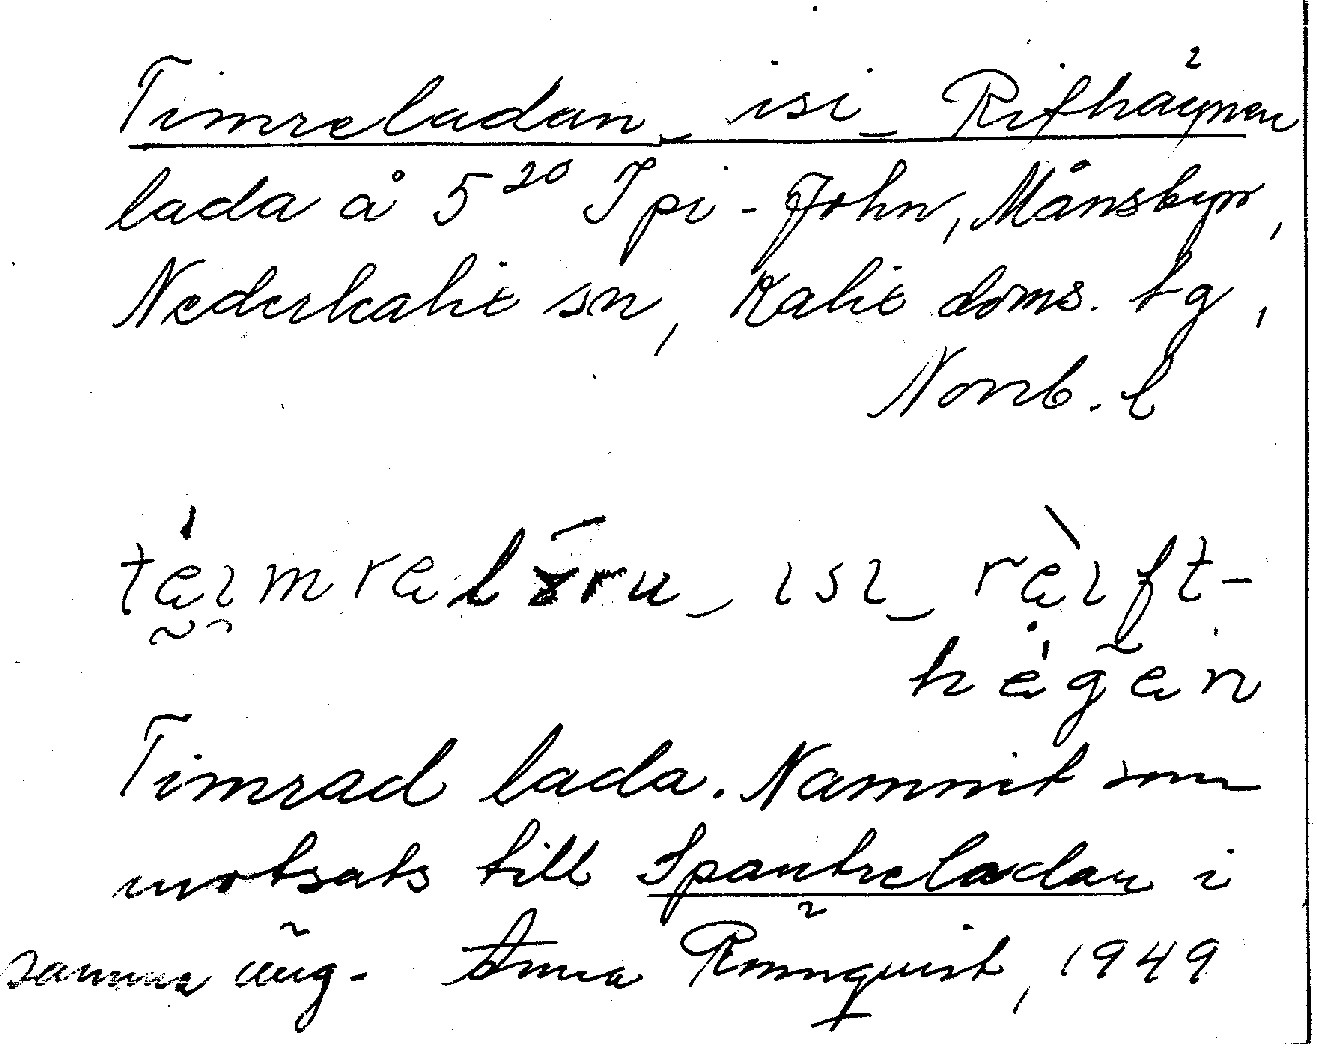 Timreladan isi Rifhägnen
lada å 5²⁰ Spi-John, Månsbyn,
Nederkalix sn, Kalix doms. tg,
Norrb. l
Timrad lada. Namnet som
motsats till Spantreladan i
samma äng. Anna Rönnqvist, 1949